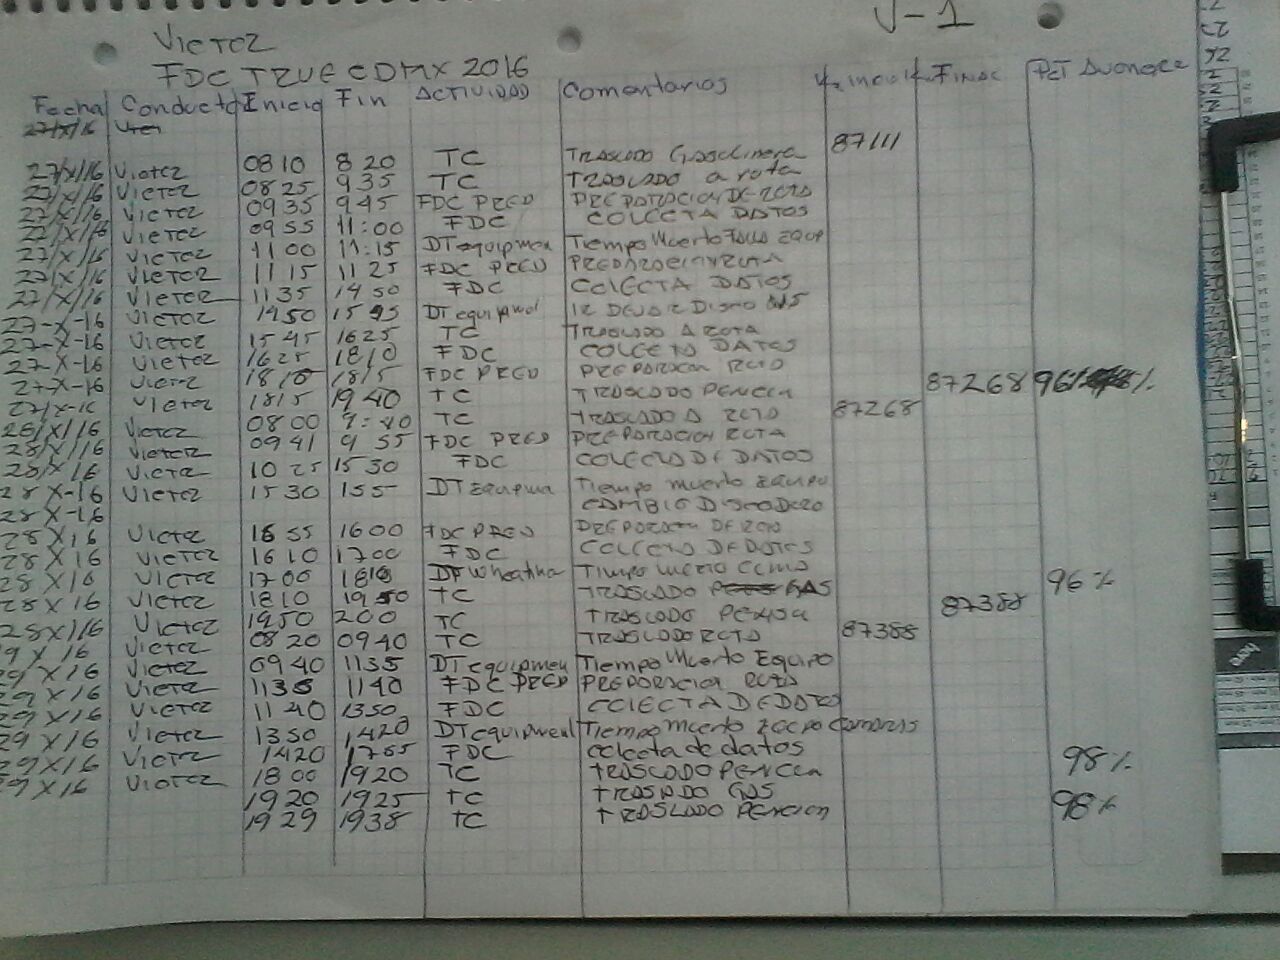 V-1
VICTOR
FDC TRUE CDMX 2016
Fecha Conducto Inicio Fin ACTIVIDAD Comentarios K. Inicial K. FINAL PCT AVANCE
27/X/16
87111
27/X/16 Victor 0810 8 20 TC TRASLADO Gasolinera
27/X/16 VICTOR 0825 9 35 TC TRASLADO a rota
27/X/16 VICTOR 0935 9 45 FDC PRED PREPARACION DE ROTA
27/X/16 VICTOR 0955 11:00 FDC COLECTA DATOS
27/X/16 VICTOR 1100 11:15 DT equipmen Tiempo Muerto Equip
27/X/16 VICTOR 1115 1125 FDC PRED
27/X/16 VICTOR 1135 1450 FDC COLECTA DATOS
27-X-16 VICTOR 1450 DT equipmet IR DEJAR Disco
27-X-16 VICTOR 1545 1625 TC TRASLADO A ROTA
27-X-16 VICTOR 1625 1810 FDC COLECTA DATOS
27-X-16 VICTOR 1810 1815 FDC PRED PREPARACION ROTA 87268 96%
27/X-16 VICTOR 1815 1940 TC TRASLADO
87268
/X/16 VICTOR 0800 9:40 TC TRASLADO A ROTA
28/X/16 VICTOR 0941 9 55 FDC PRED PREPARACION ROTA
28/X/16 VICTOR 1025 1530 FDC COLECTA DE DATOS
28 X-16 VICTOR 1530 155 DT Equipme Tiempo muerto Equipo
28 X-16 CAMBIO Disco Duro
28 X 16 VICTOR 1600 FDC PRED PREPARACION DE ROTA
28 X 16 VICTOR 1610 1700 FDC COLECTA DE DATOS
28 X 16 VICTOR 1700 1810 DT Wheather Tiempo muerto
96%
28 X 16 VICTOR 1810 1950 TC TRASLADO GAS
87388
28 X/16 VICTOR 1950 200 TC TRASLADO
9 X 16 VICTOR 0820 0940 TC TRASLADO ROTA 87388
29 X 16 VICTOR 0940 1135 DT equipmen Tiempo Muerto Equipo
29 X 16 VICTOR 1135 1140 FDC PRED PREPARACION ROTA
29 X 16 VICTOR 1140 1350 FDC COLECTA DE DATOS
29 X 16 VICTOR 1350 1420 DT equipment Tiempo muerto Equipo Camaras
29 X/16 VICTOR 1420 FDC colecta de datos
9 X 16 VICTOR 1800 1920 TC TRASLADO 98%
1920 1925 TC TRASLADO GAS
98%
1929 1938 TC TRASLADO PENCION